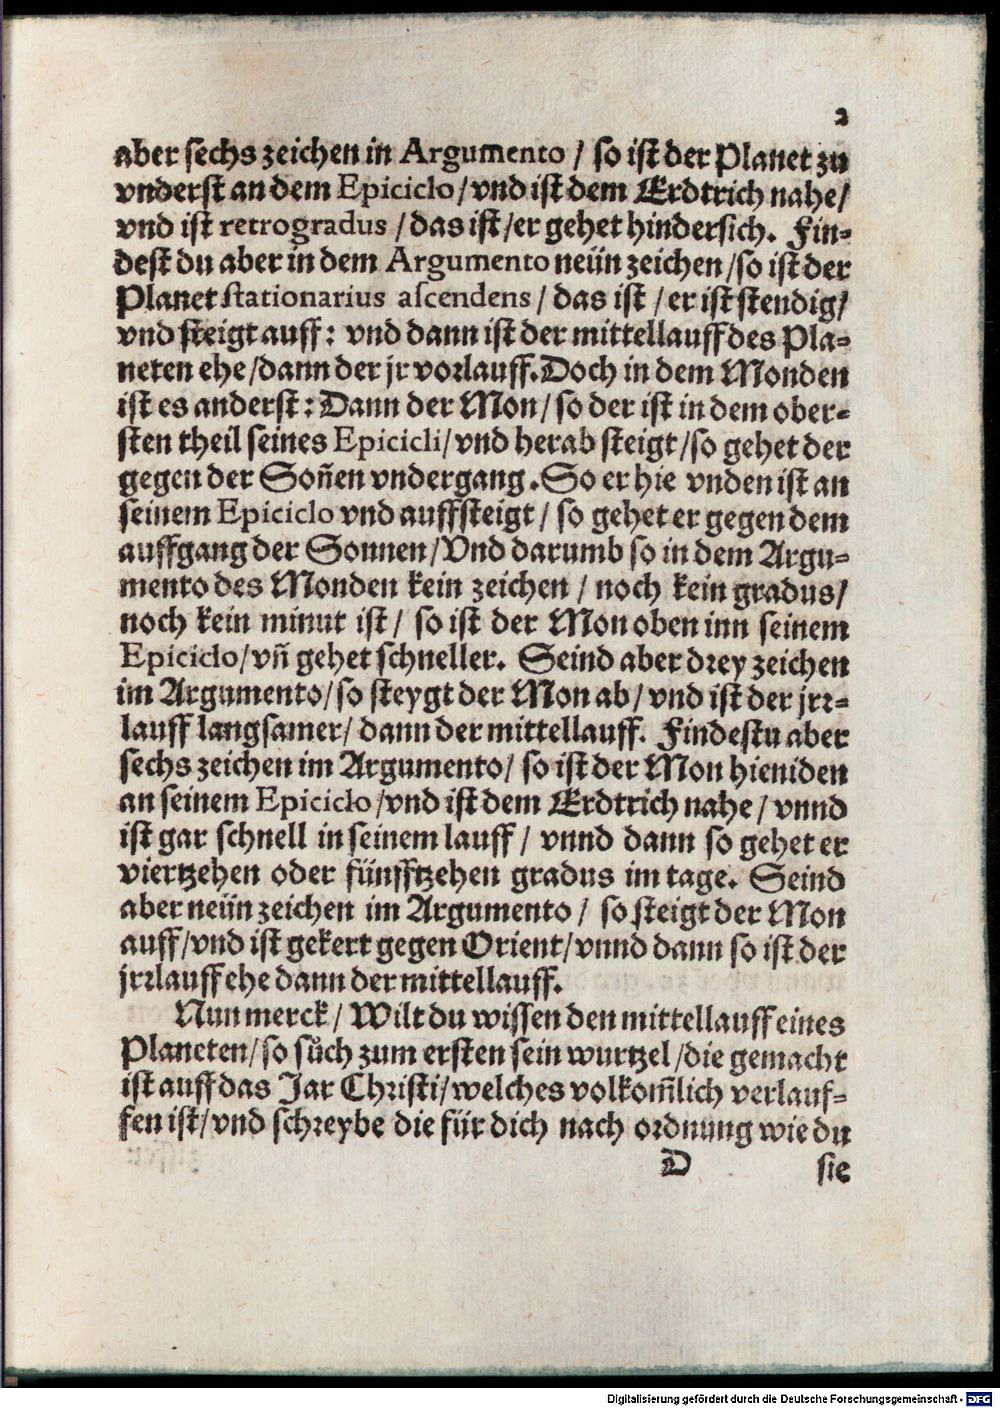 2
aber sechs zeichen in Argumento / so ist der Planet zu
vnderst an dem Epiciclo / vnd ist dem Erdtrich nahe /
vnd ist retrogradus / das ist / er gehet hindersich. Fin-
dest du aber in dem Argumento neün zeichen / so ist der
Planet stationarius ascendens / das ist / er ist stendig /
vnd steigt auff : vnd dann ist der mittellauff des Pla-
neten ehe / dann der jr vorlauff. Doch in dem Monden
ist es anderst : Dann der Mon / so der ist in dem ober-
sten theil seines Epicicli / vnd herab steigt / so gehet der
gegen der Soñen vndergang. So er hie vnden ist an
seinem Epiciclo vnd auffsteigt / so gehet er gegen dem
auffgang der Sonnen / Vnd darumb so in dem Argu-
mento des Monden kein zeichen / noch kein gradus /
noch kein minut ist / so ist der Mon oben inn seinem
Epiciclo / vñ gehet schneller. Seind aber drey zeichen
im Argumento / so steygt der Mon ab / vnd ist der jrr-
lauff langsamer / dann der mittellauff. Findestu aber
sechs zeichen im Argumento / so ist der Mon hieniden
an seinem Epiciclo / vnd ist dem Erdtrich nahe / vnnd
ist gar schnell in seinem lauff / vnnd dann so gehet er
viertzehen oder fünfftzehen gradus im tage. Seind
aber neün zeichen im Argumento / so steigt der Mon
auff / vnd ist gekert gegen Orient / vnnd dann so ist der
jrrlauff ehe dann der mittellauff.
Nun merck / Wilt du wissen den mittellauff eines
Planeten / so sůch zum ersten sein wurtzel / die gemacht
ist auff das Jar Christi / welches volkom̃lich verlauf-
fen ist / vnd schreybe die für dich nach ordnung wie du
D sie
Digitalisierung gefördert durch die Deutsche Forschungsgemeinschaft - DFG